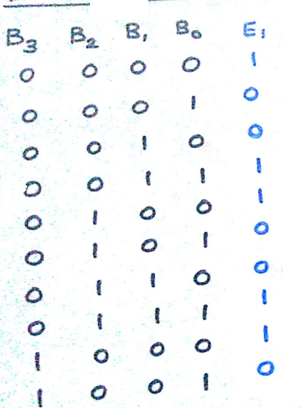 B3 B2 B1 B0 E1
0 0 0 0 1
0 0 0 1 0
0 0 1 0 0
0 0 1 1 1
0 1 0 0 1
0 1 0 1 0
0 1 1 0 0
0 1 1 1 1
1 0 0 0 1
1 0 0 1 0